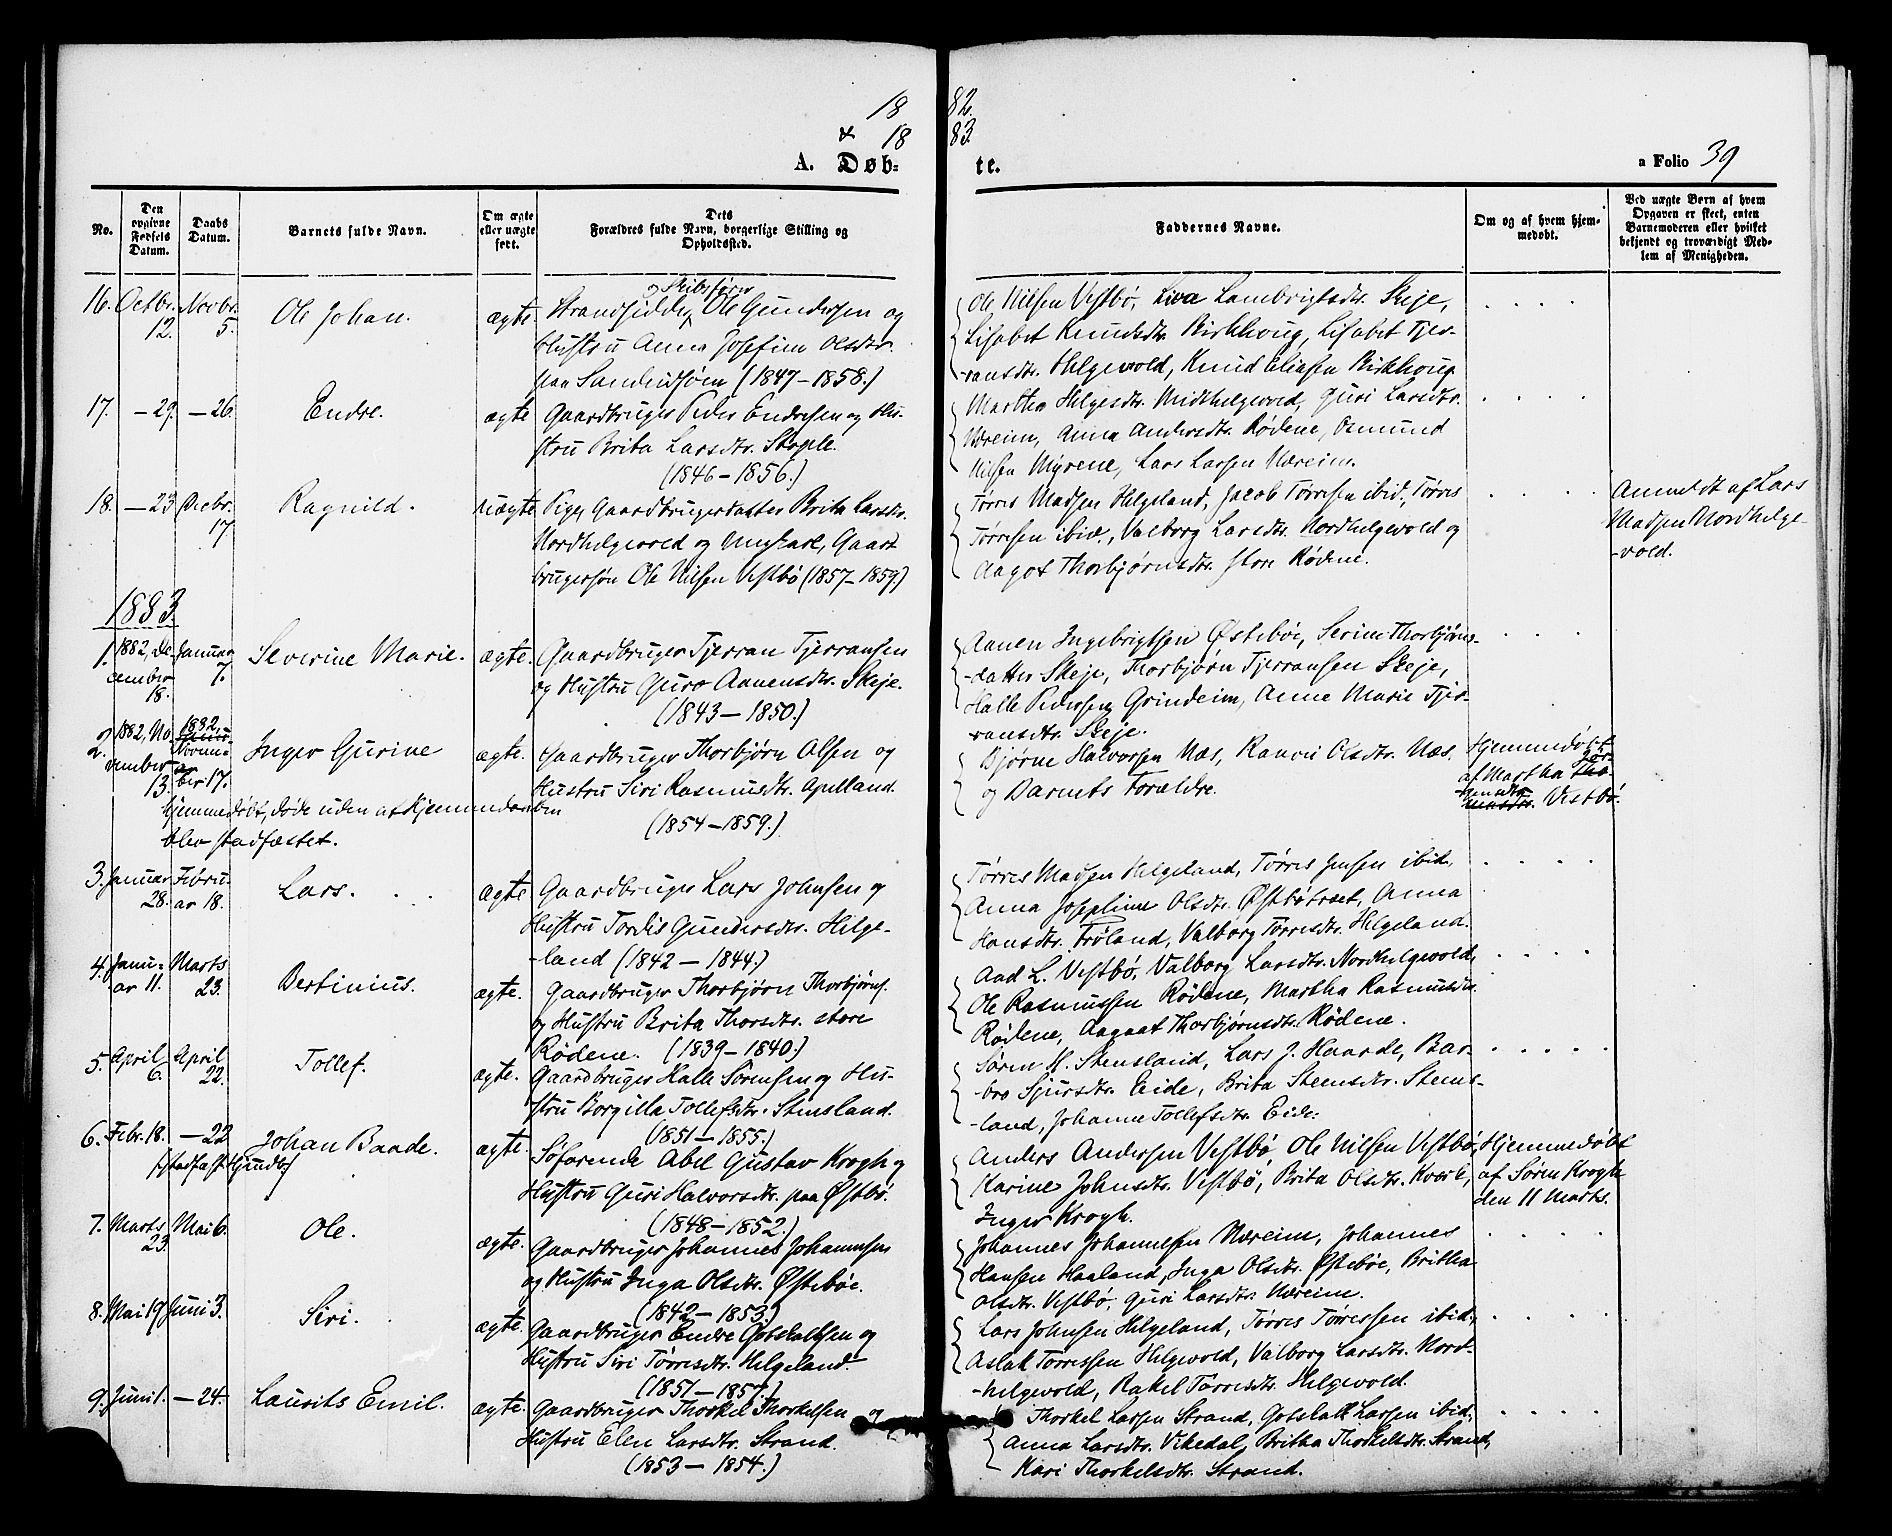 18 82.
& 18 83.
A. Døb- te.
a Folio 39
No.
Den opgivne Fødsels Datum.
Daabs Datum.
Barnets fulde Navn.
Om ægte eller uægte født.
Dets Forældres fulde Navn, borgerlige Stilling og Opholdssted.
Faddernes Navne.
Om og af hvem hjemmedøbt.
Ved uægte Børn af hvem Opgaven er skeet, enten Barnemoderen eller hvilket bekjendt og troværdigt Medlem af Menigheden.
16. Octbr. 12. Novbr. 5. Ole Johan. ægte.
og Skibsfører
Strandsidder Ole Gundersen og
Hustru Anna Josefine Olsdtr.
paa Sandeidsøen (1847-1858.)
Ole Nilsen Vestbø, Liva Lambrigtsdtr. Skeje,
Lisabet Knudsdtr. Birkhoug, Lisabet Tjer-
-ransdtr. Helgevold, Knud Eliasen Birkhoug
17. -29. -26. Endre. ægte
Gaardbruger Peder Endresen og Hu-
stru Brita Larsdtr. Stople.
(1846-1856.)
Martha Helgesdtr. Midthelgevold, Guri Larsdtr.
Næreim, Anna Andersdtr. Rødene, Osmund
Nilsen Myrene, Lars Larsen Næreim.
18. -23 Decbr. 17. Ragnild. uægte
Pige, Gaardbrugerdatter Brita Larsdtr.
Nordhelgevold og Ungkarl, Gaard
brugersøn Ole Nilsen Vestbø (1857-1859)
Tørres Madsen Helgeland, Jacob Tørresen ibid., Tørres
Tørresen ibid., Valborg Larsdtr. Nordhelgevold og
Aagot Thorbjørnsdtr. store Rødene.
Anmeldt af Lars
Madsen Nordhelge-
-vold.
1883.
1. 1882, De-
cember
18. Januar 7. Severine Marie. ægte.
Gaardbruger Tjerran Tjerransen
og Hustru Guro Aanensdtr. Skeje.
(1843-1850.)
Aanen Ingebrigtsen Østebøe, Serine Thorbjørns-
-datter Skeje, Thorbjørn Tjerransen Skeje,
Halle Pedersen Grindeim, Anne Marie Tjer-
ransdtr. Skeje.
2. 1882, No-
vember
13. 1882, Novem-
ber 17. Inger Gurine ægte.
Gaardbruger Thorbjørn Olsen og
Hustru Siri Rasmusdtr. Apelland.
(1854-1859.)
Bjørne Halvorsen Næs, Ranvei Olsdtr. Næs.
og Barnets Forældre.
Hjemmedøbt
af Martha
Vestbø.
Hjemmedøbt, døde uden at Hjemmedaaben
blev stadfæstet.
3. Januar 28. Febru-
ar 18. Lars. ægte
Gaardbruger Lars Johnsen og
Hustru Tordis Gundersdtr. Helge-
-land (1842-1844.)
Tørres Madsen Helgeland, Tørres Jensen ibid.,
Anna Josephine Olsdtr. Østbøtræet, Anna
Hansdtr. Frøland, Valborg Tørresdtr. Helgeland.
4. Janu-
ar 11. Marts 23. Bertinius. ægte.
Gaardbruger Thorbjørn Thorbjørns.
og Hustru Brita Thorsdtr. store
Rødene. (1839-1840.)
Aad L. Vestbø, Valborg Larsdtr. Nordhelgevold,
Ole Rasmussen Rødene, Martha Rasmusdtr.
Rødene, Aagaat Thorbjørnsdtr. Rødene.
5. April 6. April 22. Tollef. ægte.
Gaardbruger Halle Sørensen og Hu-
stru Borgilla Tollefsdtr. Stensland.
(1851-1855.)
Søren H. Stensland, Lars J. Haarde, Bar-
-bro Sjursdtr. Eide, Brita Steensdtr. Stens-
-land, Johanne Tollefsdtr. Eide.
6. Febr. 18. -22 Johan Baade. ægte.
Søfarende Abel Gustav Krogh og
Hustru Guri Halvorsdtr. paa Østbø.
(1848-1852.)
Anders Andersen Vestbø, Ole Nilsen Vestbø,
Karine Johnsdtr. Vestbø, Brita Olsdtr. Kværk,
Inger Krogh.
Hjemmedøbt
af Søren Krogh
den 11 Marts.
7. Marts 23. Mai 6. Ole. ægte.
Gaardbruger Johannes Johannesen
og Hustru Inga Olsdtr. Østebøe.
(1842-1853.)
Johannes Johannesen Næreim, Johannes
Hansen Haaland, Inga Olsdtr. Østebøe, Britha
Olsdtr. Vestbø, Guri Larsdtr. Næreim.
8. Mai 19. Juni 3. Siri. ægte.
Gaardbruger Endre Gotskalksen og
Hustru Siri Tørresdtr. Helgeland.
(1851-1857.)
Lars Johnsen Helgeland, Tørres Tørressen ibid.,
Aslak Tørressen Helgevold, Valborg Larsdtr. Nord-
-helgevold, Rakel Tørresdtr. Helgevold.
9. Juni 1. -24. Laurits Emil. ægte.
Gaardbruger Thorkel Thorkelsen og
Hustru Elen Larsdtr. Strand.
(1853-1854.)
Thorkel Larsen Strand, Gotskalk Larsen ibid.,
Anna Larsdtr. Vikedal, Britha Thorkelsdtr. Strand,
Kari Thorkelsdtr. Strand.